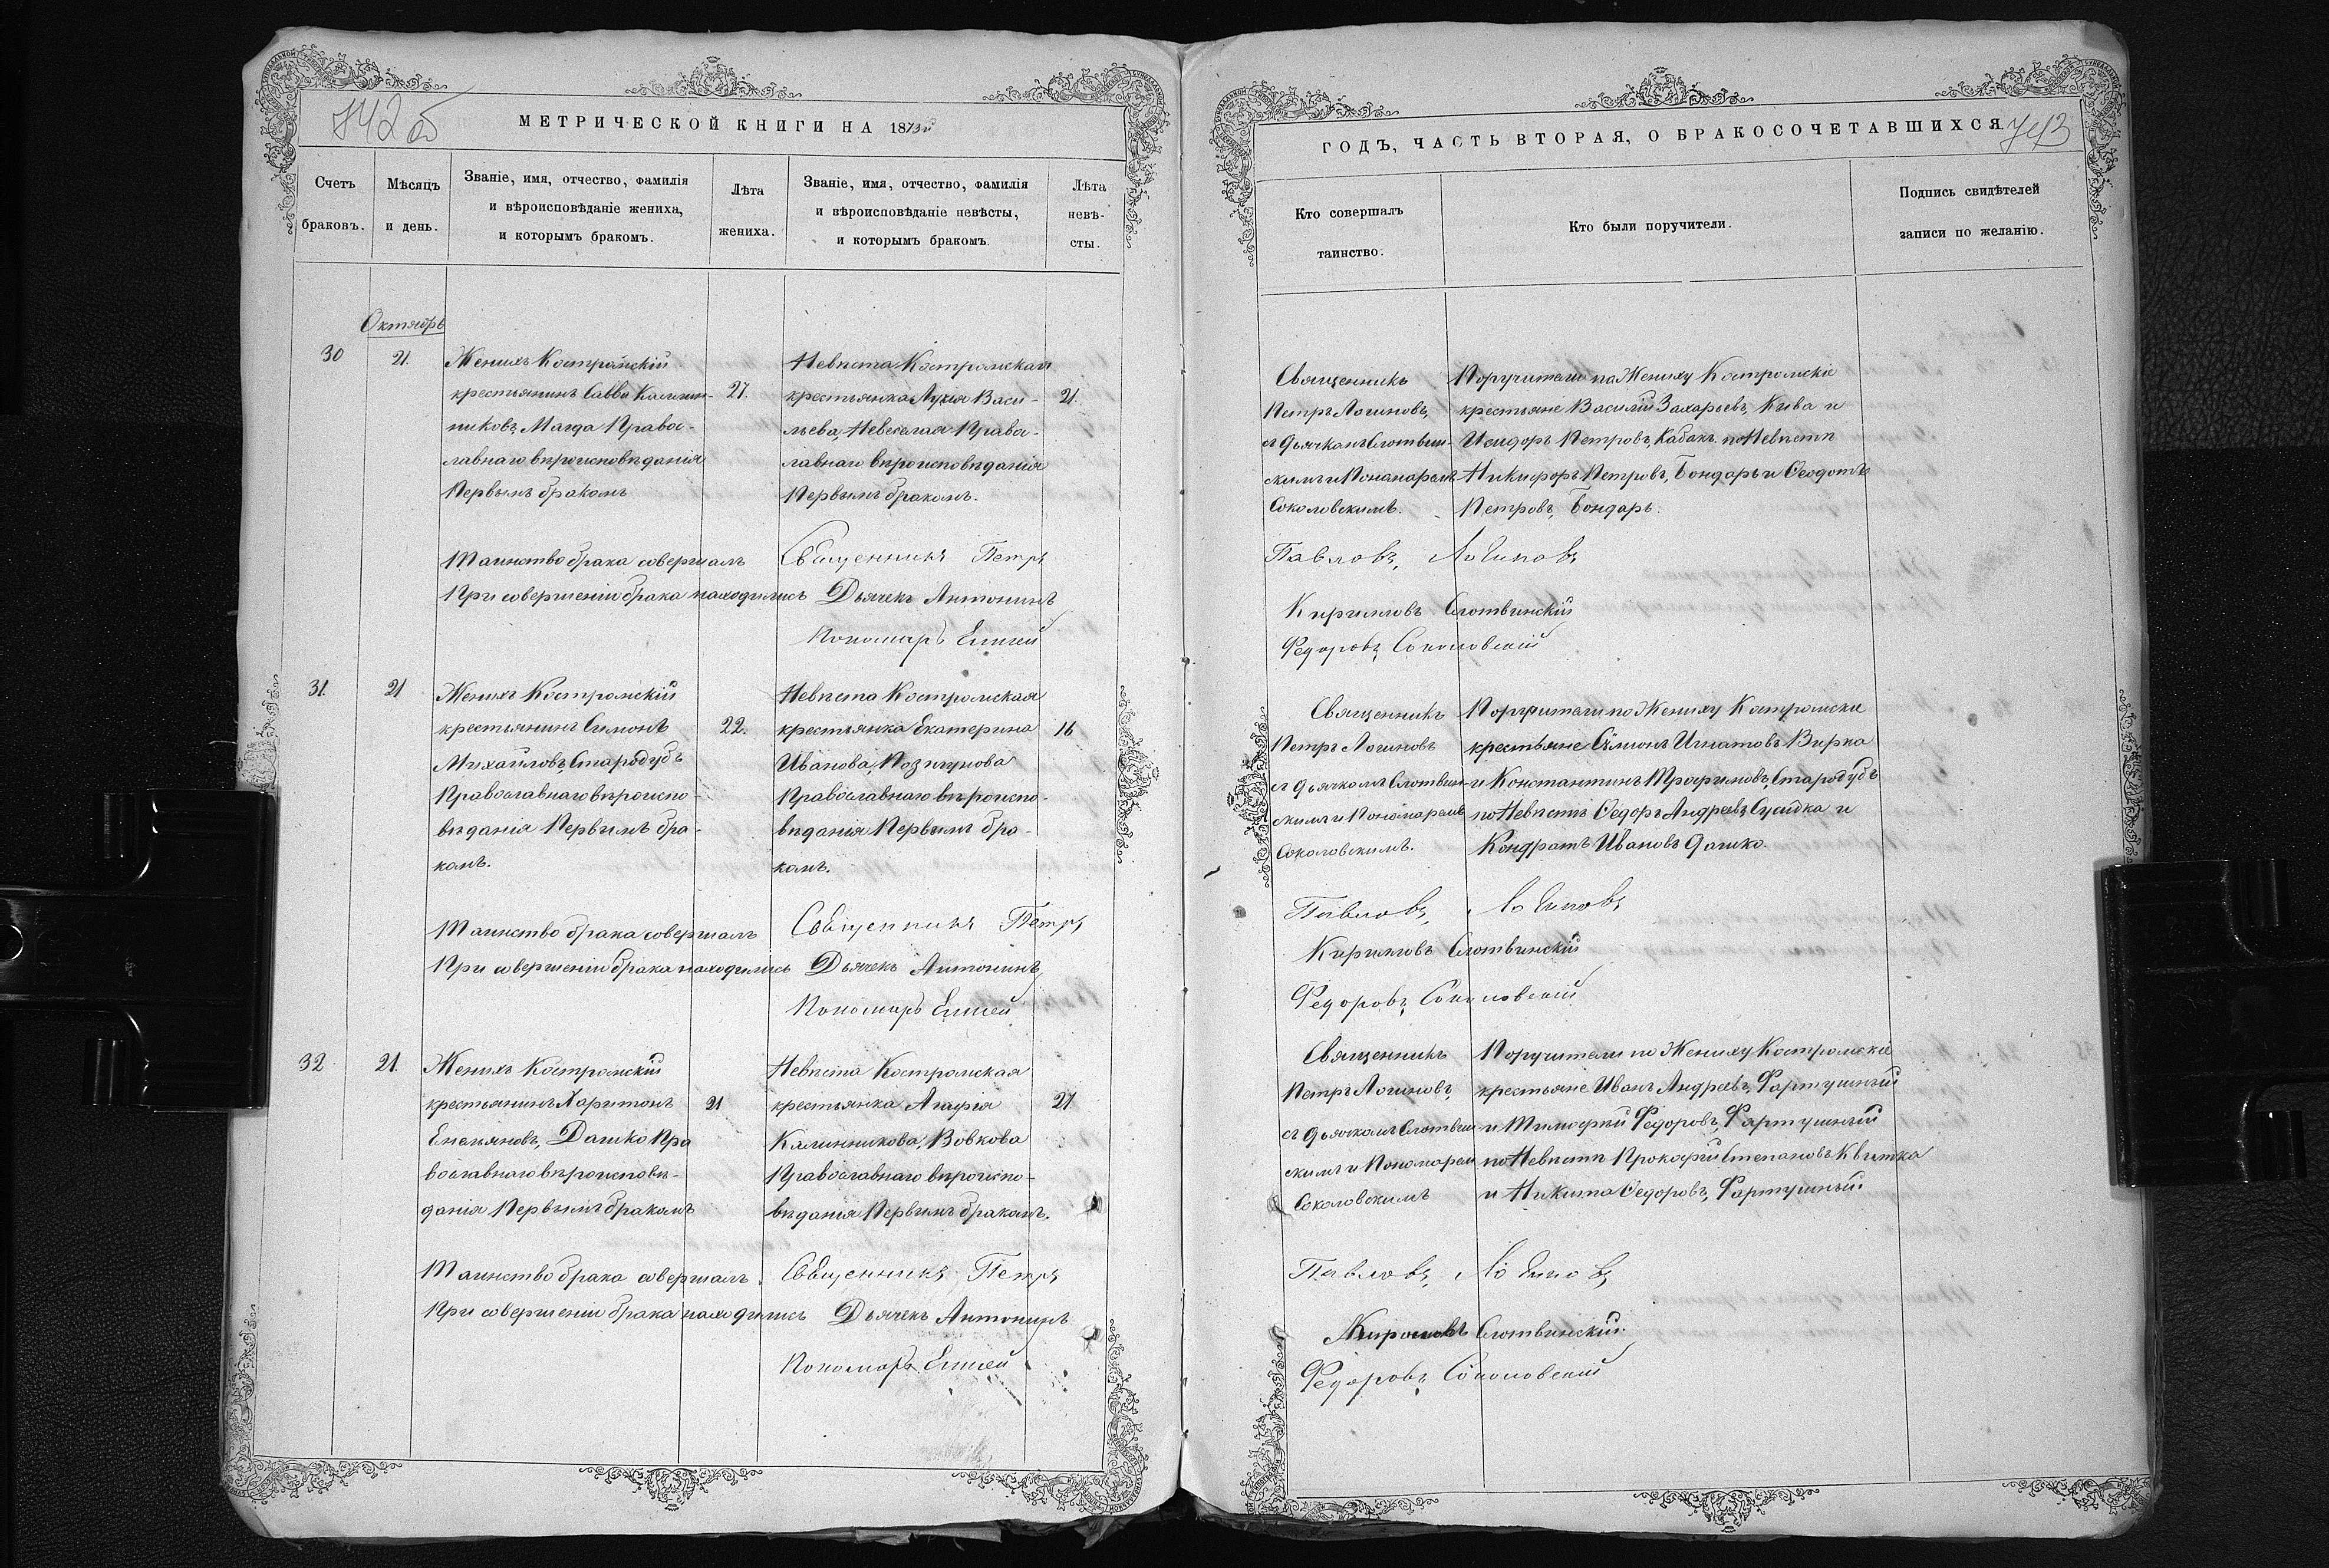 742 об
МЕТРИЧЕСКОЙ КНИГИ НА 1873й
Счетъ браковъ.
Мѣсяцъ и день.
Званіе, имя, отчество, фамилія
и вѣроисповѣданіе жениха,
и которымъ бракомъ.
Лѣта
жениха.
Званіе, имя, отчество, фамилія
и вѣроисповѣданіе невѣсты,
и которымъ бракомъ.
Лѣта
невѣ-
сты.
Октябрь
30 21. Женихъ Костромскій Невѣста Костромская
крестьянинъ Савва Калинин- 27. крестьянка Лукія Васи- 21.
никовъ, Магда Правос- льева, Невеселая Правос-
лавнаго вѣроисповѣданія лавнаго вѣроисповѣданія
Первымъ бракомъ Первымъ бракомъ.
Таинство брака совершалъ Священникъ Петръ
При совершеніи брака находились Дьячекъ Антонинъ
Пономарь Елисей
31. 21 Женихъ Костромскій Невѣста Костромская
крестьянинъ Симонъ 22. крестьянка Екатерина 16
Михайловъ, Стародубъ Иванова,
Православнаго вѣроиспо- Православнаго вѣроиспо-
вѣданія Первымъ бра- вѣданія Первымъ бра-
комъ. комъ.
Таинство брака совершалъ Священникъ Петръ
При совершеніи брака находились Дьячекъ Антонинъ
Пономарь Елисей
32 21. Женихъ Костромскій Невѣста Костромская
крестьянинъ Харитонъ 21 крестьянка Агафія 21.
Емельяновъ, Дашко Пра Калинникова, Вовкова
вославнаго вѣроисповѣ- Православнаго вѣроиспо-
данія Первымъ бракомъ вѣданія Первымъ бракомъ.
Таинство брака совершалъ Священникъ Петръ
При совершеніи брака находились Дьячекъ Антонинъ
Пономарь Елисей
ГОДЪ, ЧАСТЬ ВТОРАЯ, О БРАКОСОЧЕТАВШИХСЯ 743
Кто совершалъ
таинство.
Кто были поручители.
Подпись свидѣтелей
записи по желанію.
Священникъ Поручители по Жениху Костромскіе
Петръ Логиновъ, крестьяне Василій Захарьевъ, и
съ дьячкомъ Слотвин- Исидоръ Петровъ, Кабакъ. по Невѣстѣ
скимъ и Понамаремъ Никифоръ Петровъ, Бондарь и Ѳеодотъ
Соколовскимъ. Петровъ, Бондарь.
Павловъ, Логиновъ
Кирилловъ Слотвинскій
Федоровъ Соколовскій
Священникъ Поручители по Жениху Костромскіе
Петръ Логиновъ крестьяне Симонъ Игнатовъ Вирка
съ дьячкомъ Слотвин- и Константинъ Трофимовъ, Стародубъ
скимъ и Пономаремъ по Невѣстѣ Ѳедоръ Андреевъ и
Соколовскимъ. Кондратъ Ивановъ Дашко.
Павловъ, Логиновъ
Кирилловъ Слотвинскій
Федоровъ, Соколовскій
Священникъ Поручители по Жениху Костромскіе
Петръ Логиновъ, крестьяне Иванъ Андреевъ, Фартушный
съ дьячкомъ Слотвин и Тимофей Федоровъ, Фартушный
скимъ и Пономаремъ по Невѣстѣ Прокофій Степановъ Квитка
Соколовскимъ и Никита Ѳедоровъ, Фартушный.
Павловъ, Логиновъ
Кирилловъ Слотвинскій
Федоровъ, Соколовскій